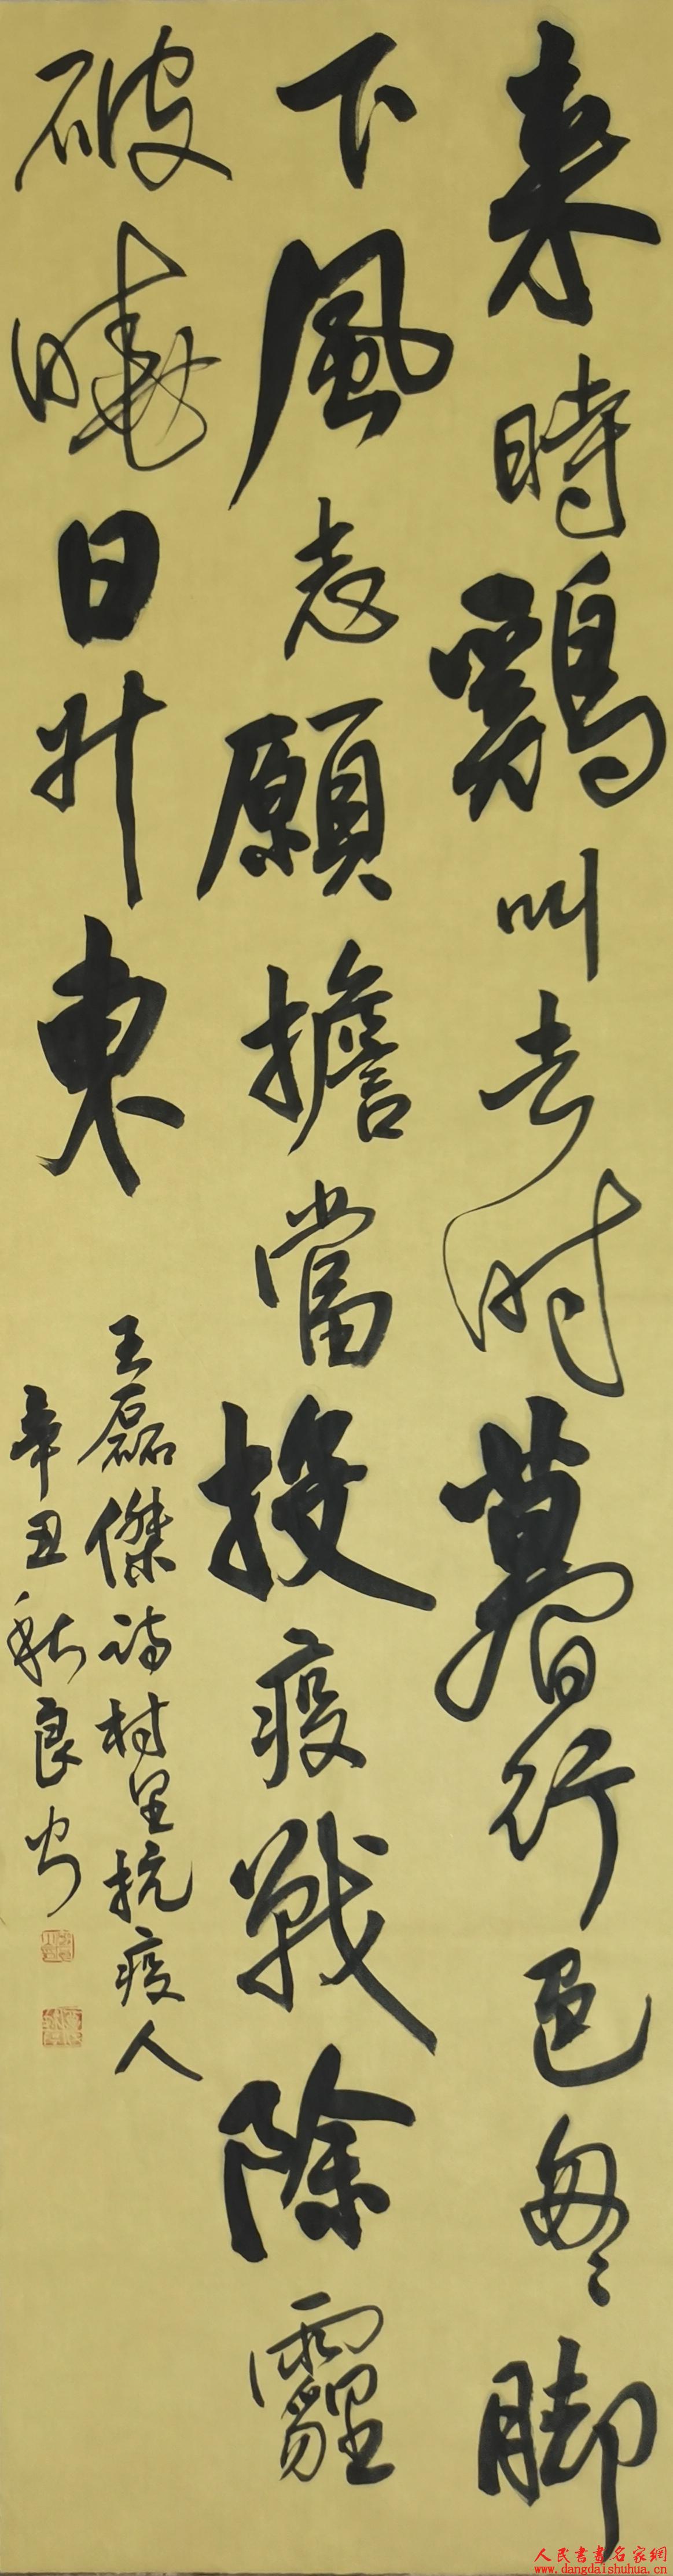 来時鷄叫去时暮行色匆匆脚
下風志願擔當投疫戰除霾
破曉日升東
王磊傑詩村里抗疫人
辛丑秋良安
人民书画名家網
www.dangdaishuhua.cn